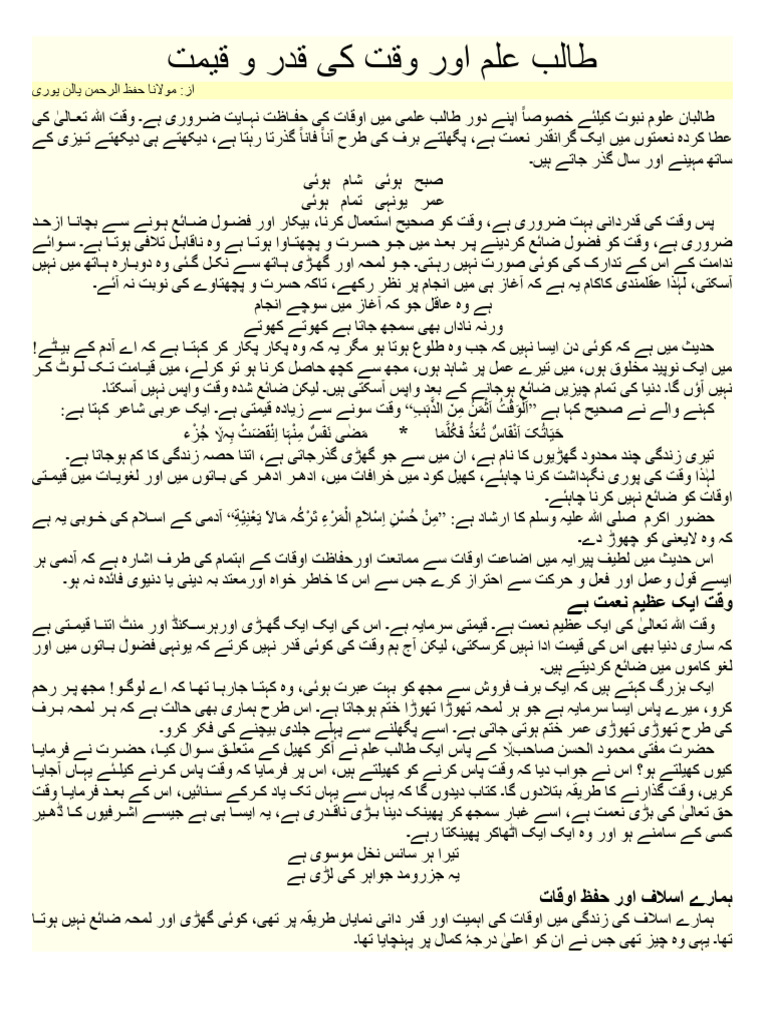 طالب علم اور وقت کی قدر و قیمت
از: مولانا حفظ الرحمن پالن پوری
طالبان علوم نبوت کیلئے خصوصاً اپنے دور طالب علمی میں اوقات کی حفاظت نہایت ضروری ہے۔ وقت اللہ تعالیٰ کی
عطا کردہ نعمتوں میں ایک گرانقدر نعمت ہے، پگھلتے برف کی طرح آناً فاناً گذرتا رہتا ہے، دیکھتے ہی دیکھتے تیزی کے
ساتھ مہینے اور سال گذر جاتے ہیں۔
صبح ہوئی شام ہوئی
عمر یونہی تمام ہوئی
پس وقت کی قدردانی بہت ضروری ہے، وقت کو صحیح استعمال کرنا، بیکار اور فضول ضائع ہونے سے بچانا ازحد
ضروری ہے، وقت کو فضول ضائع کردینے پر بعد میں جو حسرت و پچھتاوا ہوتا ہے وہ ناقابل تلافی ہوتا ہے۔ سوائے
ندامت کے اس کے تدارک کی کوئی صورت نہیں رہتی۔ جو لمحہ اور گھڑی ہاتھ سے نکل گئی وہ دوبارہ ہاتھ میں نہیں
آسکتی، لہٰذا عقلمندی کاکام یہ ہے کہ آغاز ہی میں انجام پر نظر رکھے، تاکہ حسرت و پچھتاوے کی نوبت نہ آئے۔
ہے وہ عاقل جو کہ آغاز میں سوچے انجام
ورنہ ناداں بھی سمجھ جاتا ہے کھوتے کھوتے
حدیث میں ہے کہ کوئی دن ایسا نہیں کہ جب وہ طلوع ہوتا ہو مگر یہ کہ وہ پکار پکار کر کہتا ہے کہ اے آدم کے بیٹے!
میں ایک نوپید مخلوق ہوں، میں تیرے عمل پر شاہد ہوں، مجھ سے کچھ حاصل کرنا ہو تو کرلے، میں قیامت تک لوٹ کر
نہیں آؤں گا۔ دنیا کی تمام چیزیں ضائع ہوجانے کے بعد واپس آسکتی ہیں۔ لیکن ضائع شدہ وقت واپس نہیں آسکتا۔
کہنے والے نے صحیح کہا ہے ”اَلْوَقْتُ اَثْمَنُ مِنَ الذَّہَبِ“ وقت سونے سے زیادہ قیمتی ہے۔ ایک عربی شاعر کہتا ہے:
حَیَاتُکَ اَنْفَاسٌ تُعَدُّ فَکُلَّمَا * مَضٰی نَفَسٌ مِنْہَا اِنْقَضَتْ بِہٖ جُزْء
تیری زندگی چند محدود گھڑیوں کا نام ہے، ان میں سے جو گھڑی گذرجاتی ہے، اتنا حصہ زندگی کا کم ہوجاتا ہے۔
لہٰذا وقت کی پوری نگہداشت کرنا چاہئے، کھیل کود میں خرافات میں، ادھر ادھر کی باتوں میں اور لغویات میں قیمتی
اوقات کو ضائع نہیں کرنا چاہئے۔
حضور اکرم صلی اللہ علیہ وسلم کا ارشاد ہے: ”مِنْ حُسْنِ اِسْلاَمِ الْمَرْءِ تَرْکُہ مَالاَ یَعْنِیْہِ“ آدمی کے اسلام کی خوبی یہ ہے
کہ وہ لایعنی کو چھوڑ دے۔
اس حدیث میں لطیف پیرایہ میں اضاعت اوقات سے ممانعت اورحفاظت اوقات کے اہتمام کی طرف اشارہ ہے کہ آدمی ہر
ایسے قول وعمل اور فعل و حرکت سے احتراز کرے جس سے اس کا خاطر خواہ اورمعتد بہ دینی یا دنیوی فائدہ نہ ہو۔
وقت ایک عظیم نعمت ہے
وقت اللہ تعالیٰ کی ایک عظیم نعمت ہے۔ قیمتی سرمایہ ہے۔ اس کی ایک ایک گھڑی اورہرسکنڈ اور منٹ اتنا قیمتی ہے
کہ ساری دنیا بھی اس کی قیمت ادا نہیں کرسکتی، لیکن آج ہم وقت کی کوئی قدر نہیں کرتے کہ یونہی فضول باتوں میں اور
لغو کاموں میں ضائع کردیتے ہیں۔
ایک بزرگ کہتے ہیں کہ ایک برف فروش سے مجھ کو بہت عبرت ہوئی، وہ کہتا جارہا تھا کہ اے لوگو! مجھ پر رحم
کرو، میرے پاس ایسا سرمایہ ہے جو ہر لمحہ تھوڑا تھوڑا ختم ہوجاتا ہے۔ اس طرح ہماری بھی حالت ہے کہ ہر لمحہ برف
کی طرح تھوڑی تھوڑی عمر ختم ہوتی جاتی ہے۔ اسے پگھلنے سے پہلے جلدی بیچنے کی فکر کرو۔
حضرت مفتی محمود الحسن صاحب کے پاس ایک طالب علم نے آکر کھیل کے متعلق سوال کیا، حضرت نے فرمایا
کیوں کھیلتے ہو؟ اس نے جواب دیا کہ وقت پاس کرنے کو کھیلتے ہیں، اس پر فرمایا کہ وقت پاس کرنے کیلئے یہاں آجایا
کریں، وقت گذارنے کا طریقہ بتلادوں گا۔ کتاب دیدوں گا کہ یہاں سے یہاں تک یاد کرکے سنائیں، اس کے بعد فرمایا وقت
حق تعالیٰ کی بڑی نعمت ہے، اسے غبار سمجھ کر پھینک دینا بڑی ناقدری ہے، یہ ایسا ہی ہے جیسے اشرفیوں کا ڈھیر
کسی کے سامنے ہو اور وہ ایک ایک اٹھاکر پھینکتا رہے۔
تیرا ہر سانس نخل موسوی ہے
یہ جزرومد جواہر کی لڑی ہے
ہمارے اسلاف اور حفظ اوقات
ہمارے اسلاف کی زندگی میں اوقات کی اہمیت اور قدر دانی نمایاں طریقہ پر تھی، کوئی گھڑی اور لمحہ ضائع نہیں ہوتا
تھا۔ یہی وہ چیز تھی جس نے ان کو اعلیٰ درجۂ کمال پر پہنچایا تھا۔